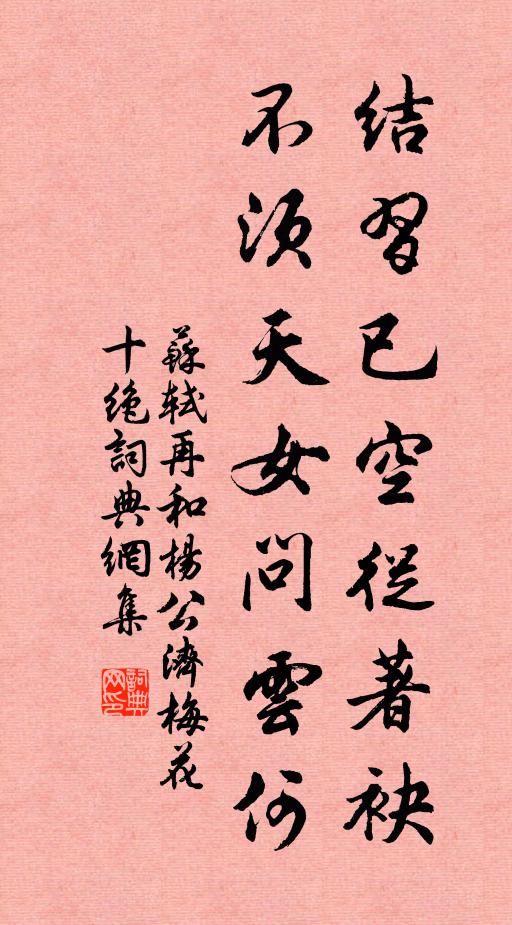 結習已空從著袂
不須天女問雲何
蘇軾再和楊公濟梅花
十絶詞典網集
詞典
网印